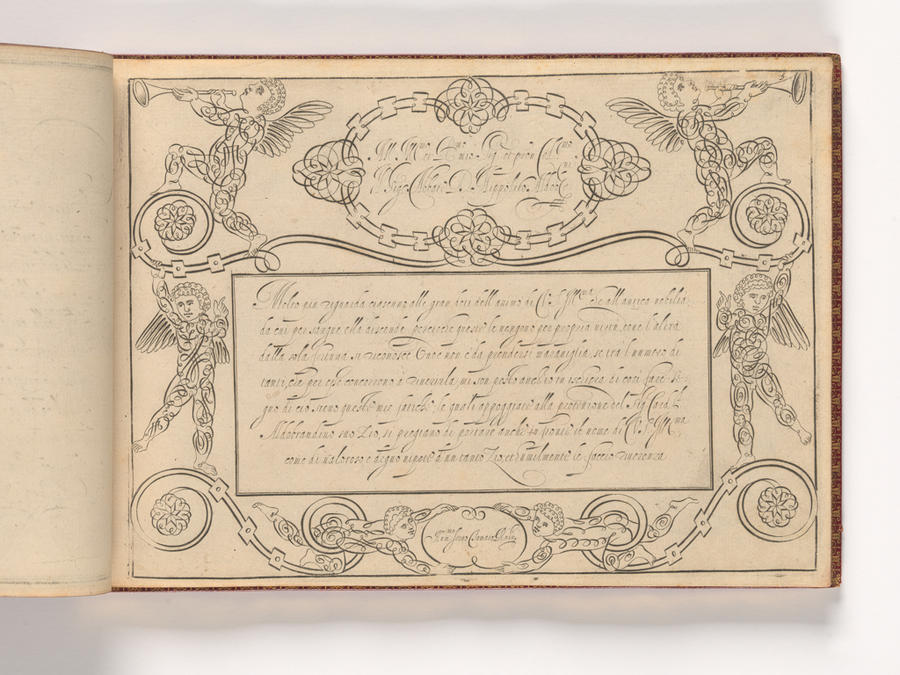 All' Ill.mo et R.mo mio Sig. et pron Coll.mo
Il Sig. Abbate D. Hippolito Aldob.ni
Molto più riguarda ciascuno alle gran doti dell'animo di V. S. Ill.ma che all'antica nobiltà
da cui per sangue ella discende, percioche queste le vengono per propria virtù, come l'altra
dalla sola fortuna si riconosce. Onde non è da prendersi maraviglia, se trà l'numero di
tanti, che per ciò concorrono a riverirla, mi son posto anch'io in ischiera di così fare. Se-
gno di ciò sieno queste mie fatiche, le quali appoggiate alla protettione del Sig. Card.le
Aldobrandino suo Zio, si pregiano di portare anche in fronte il nome di V. S. Ill.ma
come di valoroso, e degno nipote a un tanto Zio, et humilmente le faccio riverenza